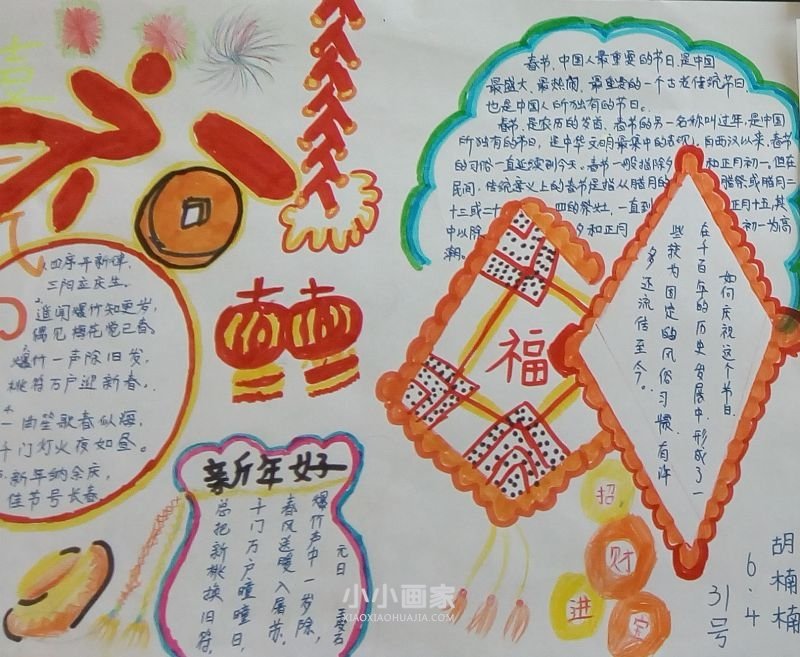 喜
春节,中国人最重要的节日,是中国
最盛大、最热闹、最重要的一个古老传统节日,
也是中国人所独有的节日。
春节,是农历的岁首,春节的另一名称叫过年,是中国
所独有的节日,是中华文明最集中的表现。自西汉以来,春节
的习俗一直延续到今天。春节一般指除夕和正月初一,但在
民间,传统意义上的春节是指从腊月的腊祭或腊月二
十三或二十四的祭灶,一直到正月十五,其
中以除夕和正月初一为高
潮。
四序开新律,
三阳应庆生。
遥闻爆竹知更岁,
偶见梅花觉已春。
爆竹一声除旧岁,
桃符万户迎新春。
一曲笙歌春似海,
千门灯火夜如昼。
新年纳余庆,
佳节号长春
福
如何庆祝这个节日,
在千百年的历史发展中,形成了一
些较为固定的风俗习惯,有许
多还流传至今。
新年好
元日 王安石
爆竹声中一岁除,
春风送暖入屠苏。
千门万户曈曈日,
总把新桃换旧符。
招
财
进
宝
胡楠楠
6.4
31号
小小画家
XIAOXIAOHUAJIA.COM